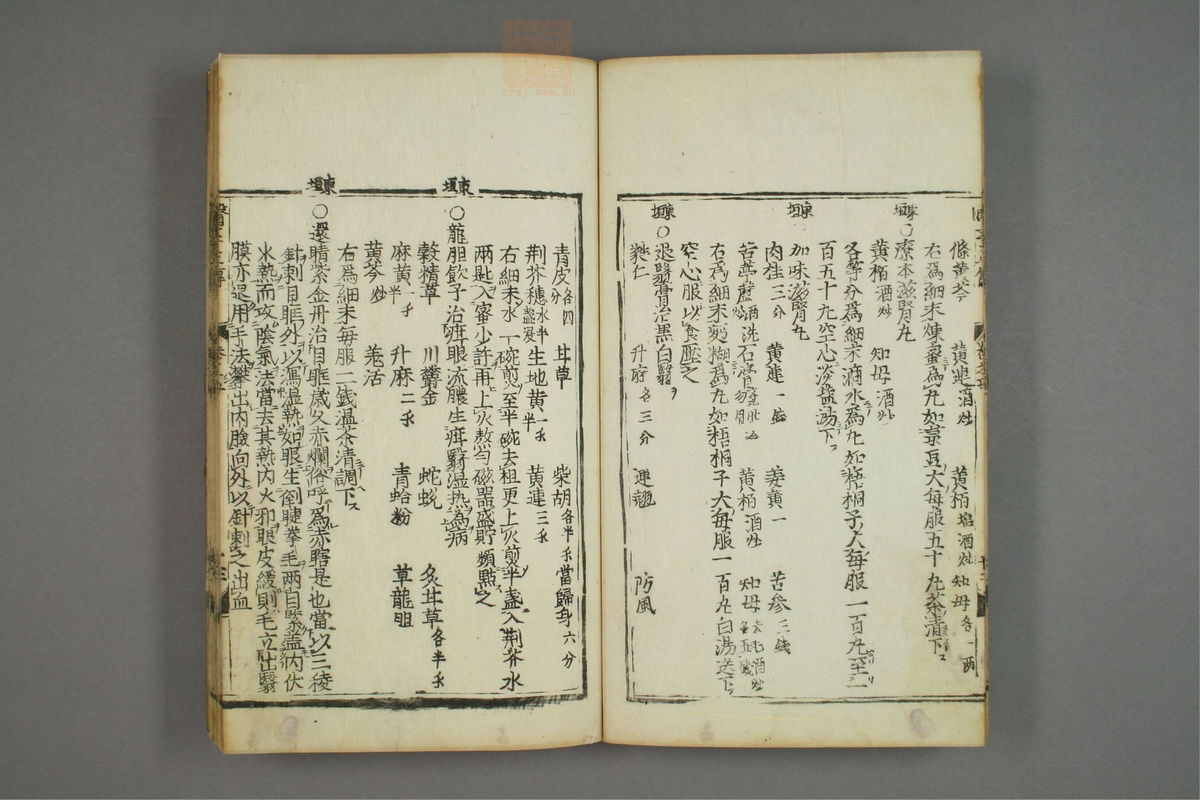 條黄芩 黄連酒炒 黄柏塩酒炒 知母各一两
右為細末煉蜜為丸如菉豆大每服五十丸茶清下
東垣
○療本滋腎丸
黄栢酒炒 知母酒炒
各等分為細末滴水為丸如梧桐子大每服一百丸至
百五十丸空心淡盐湯下
東垣
加味滋腎丸
肉桂三分 黄連一錢 姜黄一 苦参三錢
苦葶藶酒洗炒 石膏 黄栢酒炒 知母去毛酒炒
右為細末麵糊為丸如梧桐子大每服一百丸白湯送下
空心服以食壓之
東垣
○退翳膏治黒白翳
蕤仁 升麻各三分 連翹 防風
青皮各四分 甘草 柴胡各半 當歸身六分
荆芥穗水半盞浸 生地黄一 半 黄連三
右細末水一碗煎至半碗去柤更上火煎半盞入荆芥水
兩匙入蜜少許再上火熬匀磁器盛貯頻點之
東垣
○龍胆飲子治疳眼流膿生疳翳湿热為病
穀精草 川鬱金 蛇蛻 炙甘草各半
麻黄半 升麻二 青蛤粉 草龍胆
黄芩炒 羗活
右為細末每服二錢温茶清調下
東垣
○還睛紫金丹治目眶歳久赤爛俗呼為赤瞎是也當以三稜
針刺目眶外以瀉湿熱如眼生倒睫拳毛兩目緊盖内伏
火熱而攻陰氣法當去其熱内火邪眼皮緩則毛立出翳
膜亦退用手法攀出内瞼向外以針刺之出血